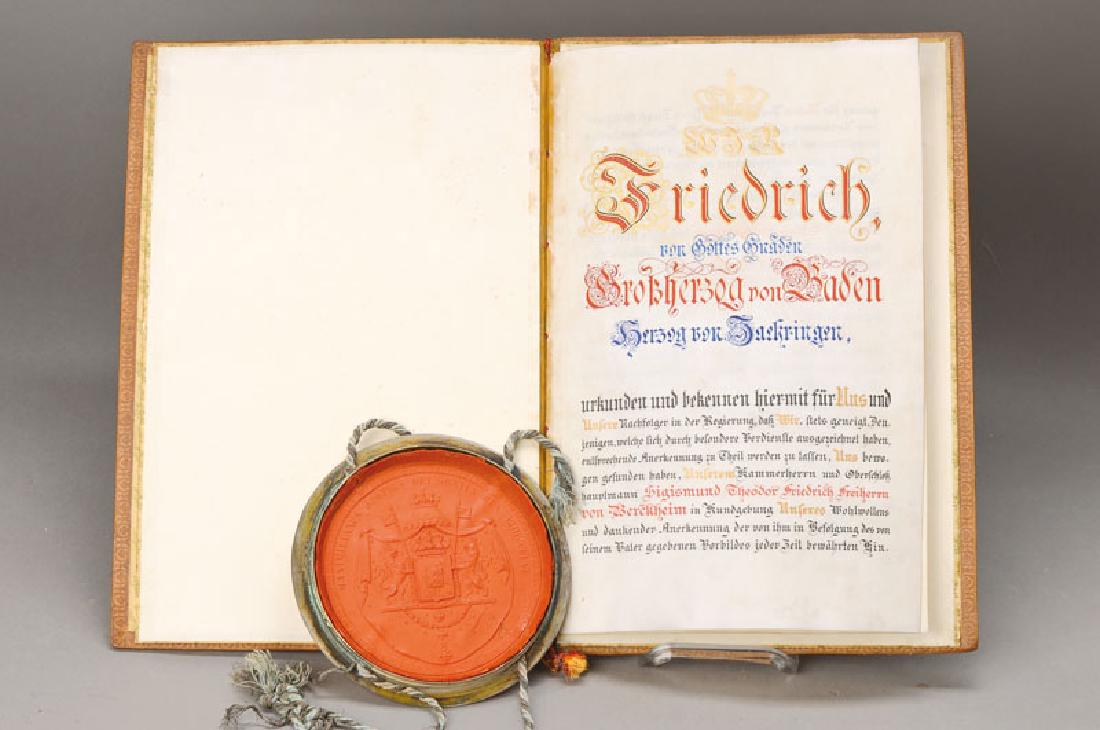 WIR
Friedrich,
von Gottes Gnaden
Großherzog von Baden
Herzog von Zaehringen,
urkunden und bekennen hiermit für Uns und
Unsere Nachfolger in der Regierung, daß Wir, stets geneigt, Den
jenigen, welche sich durch besondere Verdienste ausgezeichnet haben,
entsprechende Anerkennung zu Theil werden zu lassen, Uns bewo-
gen gefunden haben, Unserem Kammerherrn und Oberschloß
hauptmann Sigismund Theodor Friedrich Freiherrn
von Berckheim in Kundgebung Unseres Wohlwollens
und dankender Anerkennung der von ihm in Befolgung des von
seinem Vater gegebenen Vorbildes jeder Zeit bewährten Hin-